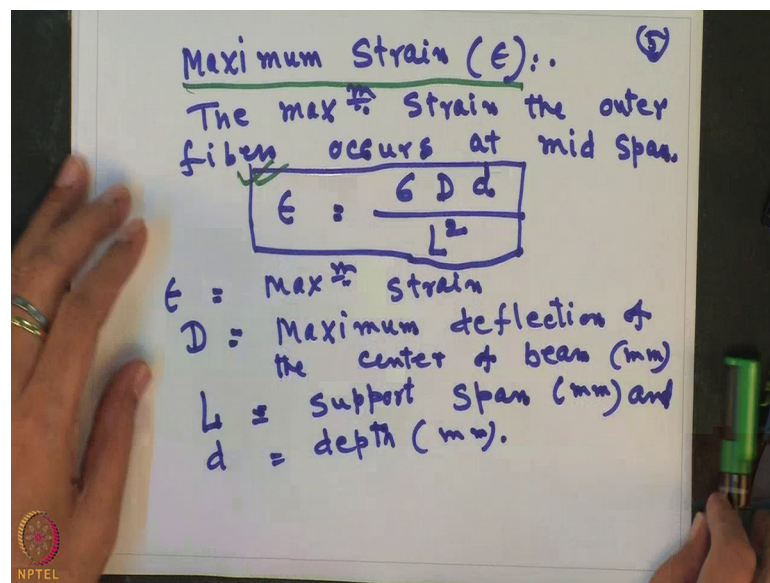 Maximum Strain (ε):.
⑤
The maxm strain the outer
fiber occurs at mid span.
ε = 6 D d / L²
ε = maxm strain
D = Maximum deflection of
the center of beam (mm)
L = support span (mm) and
d = depth (mm).
NPTEL